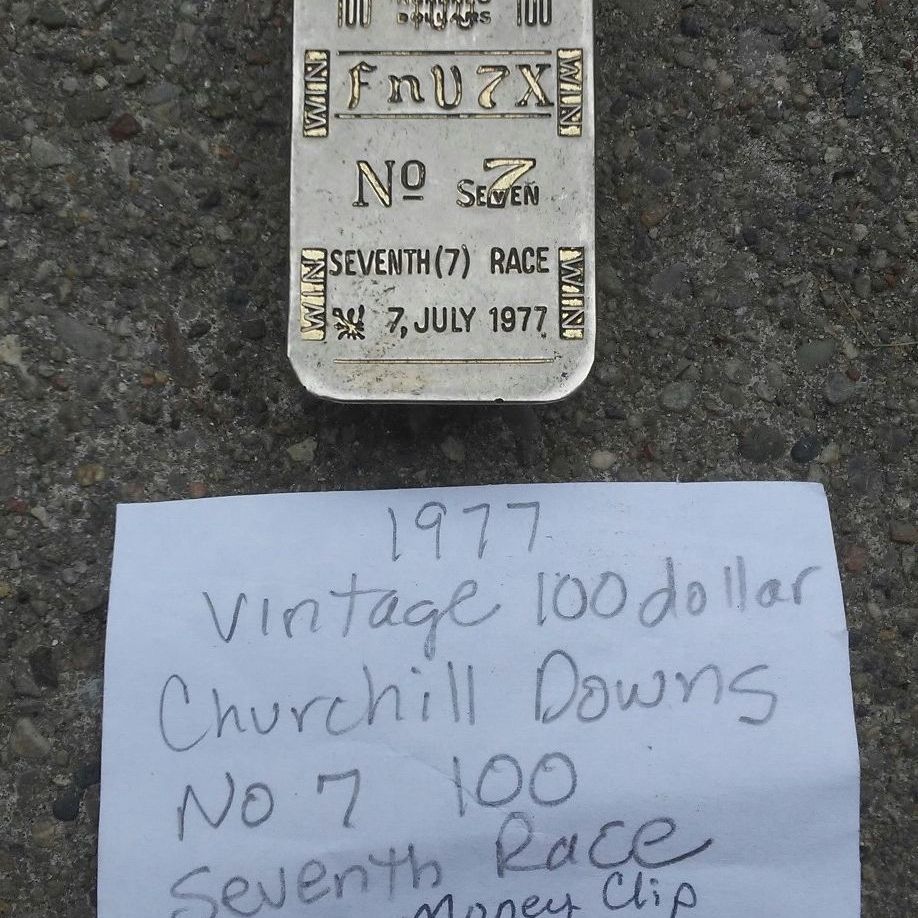 100 100 100
DOLLARS
WIN fnU7X WIN
No 7 SEVEN
WIN SEVENTH(7) RACE WIN
7, JULY 1977
1977
Vintage 100 dollar
Churchill Downs
No 7 100
Seventh Race
Money Clip